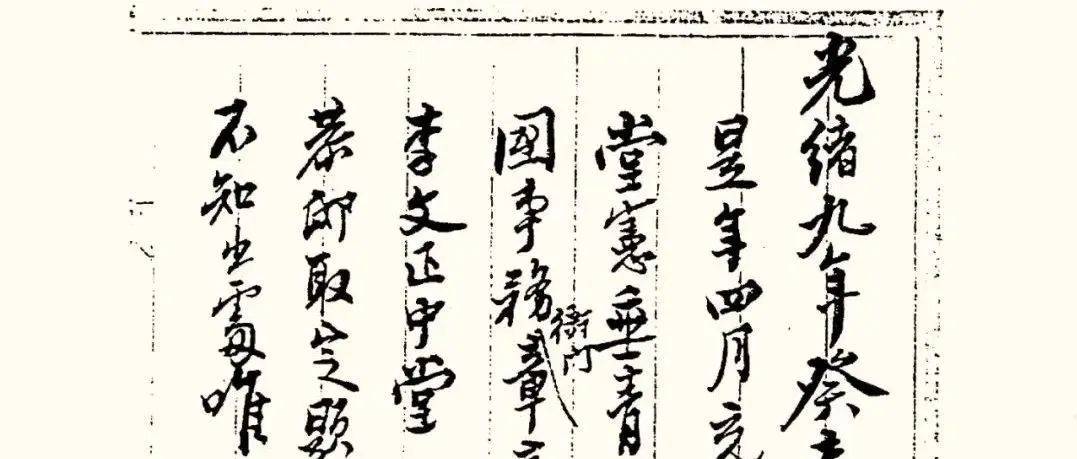 光緒九年癸
昰年四月
堂憲垂青
國事務衙門章
李文正中堂
恭邸取定題
不知出處唯